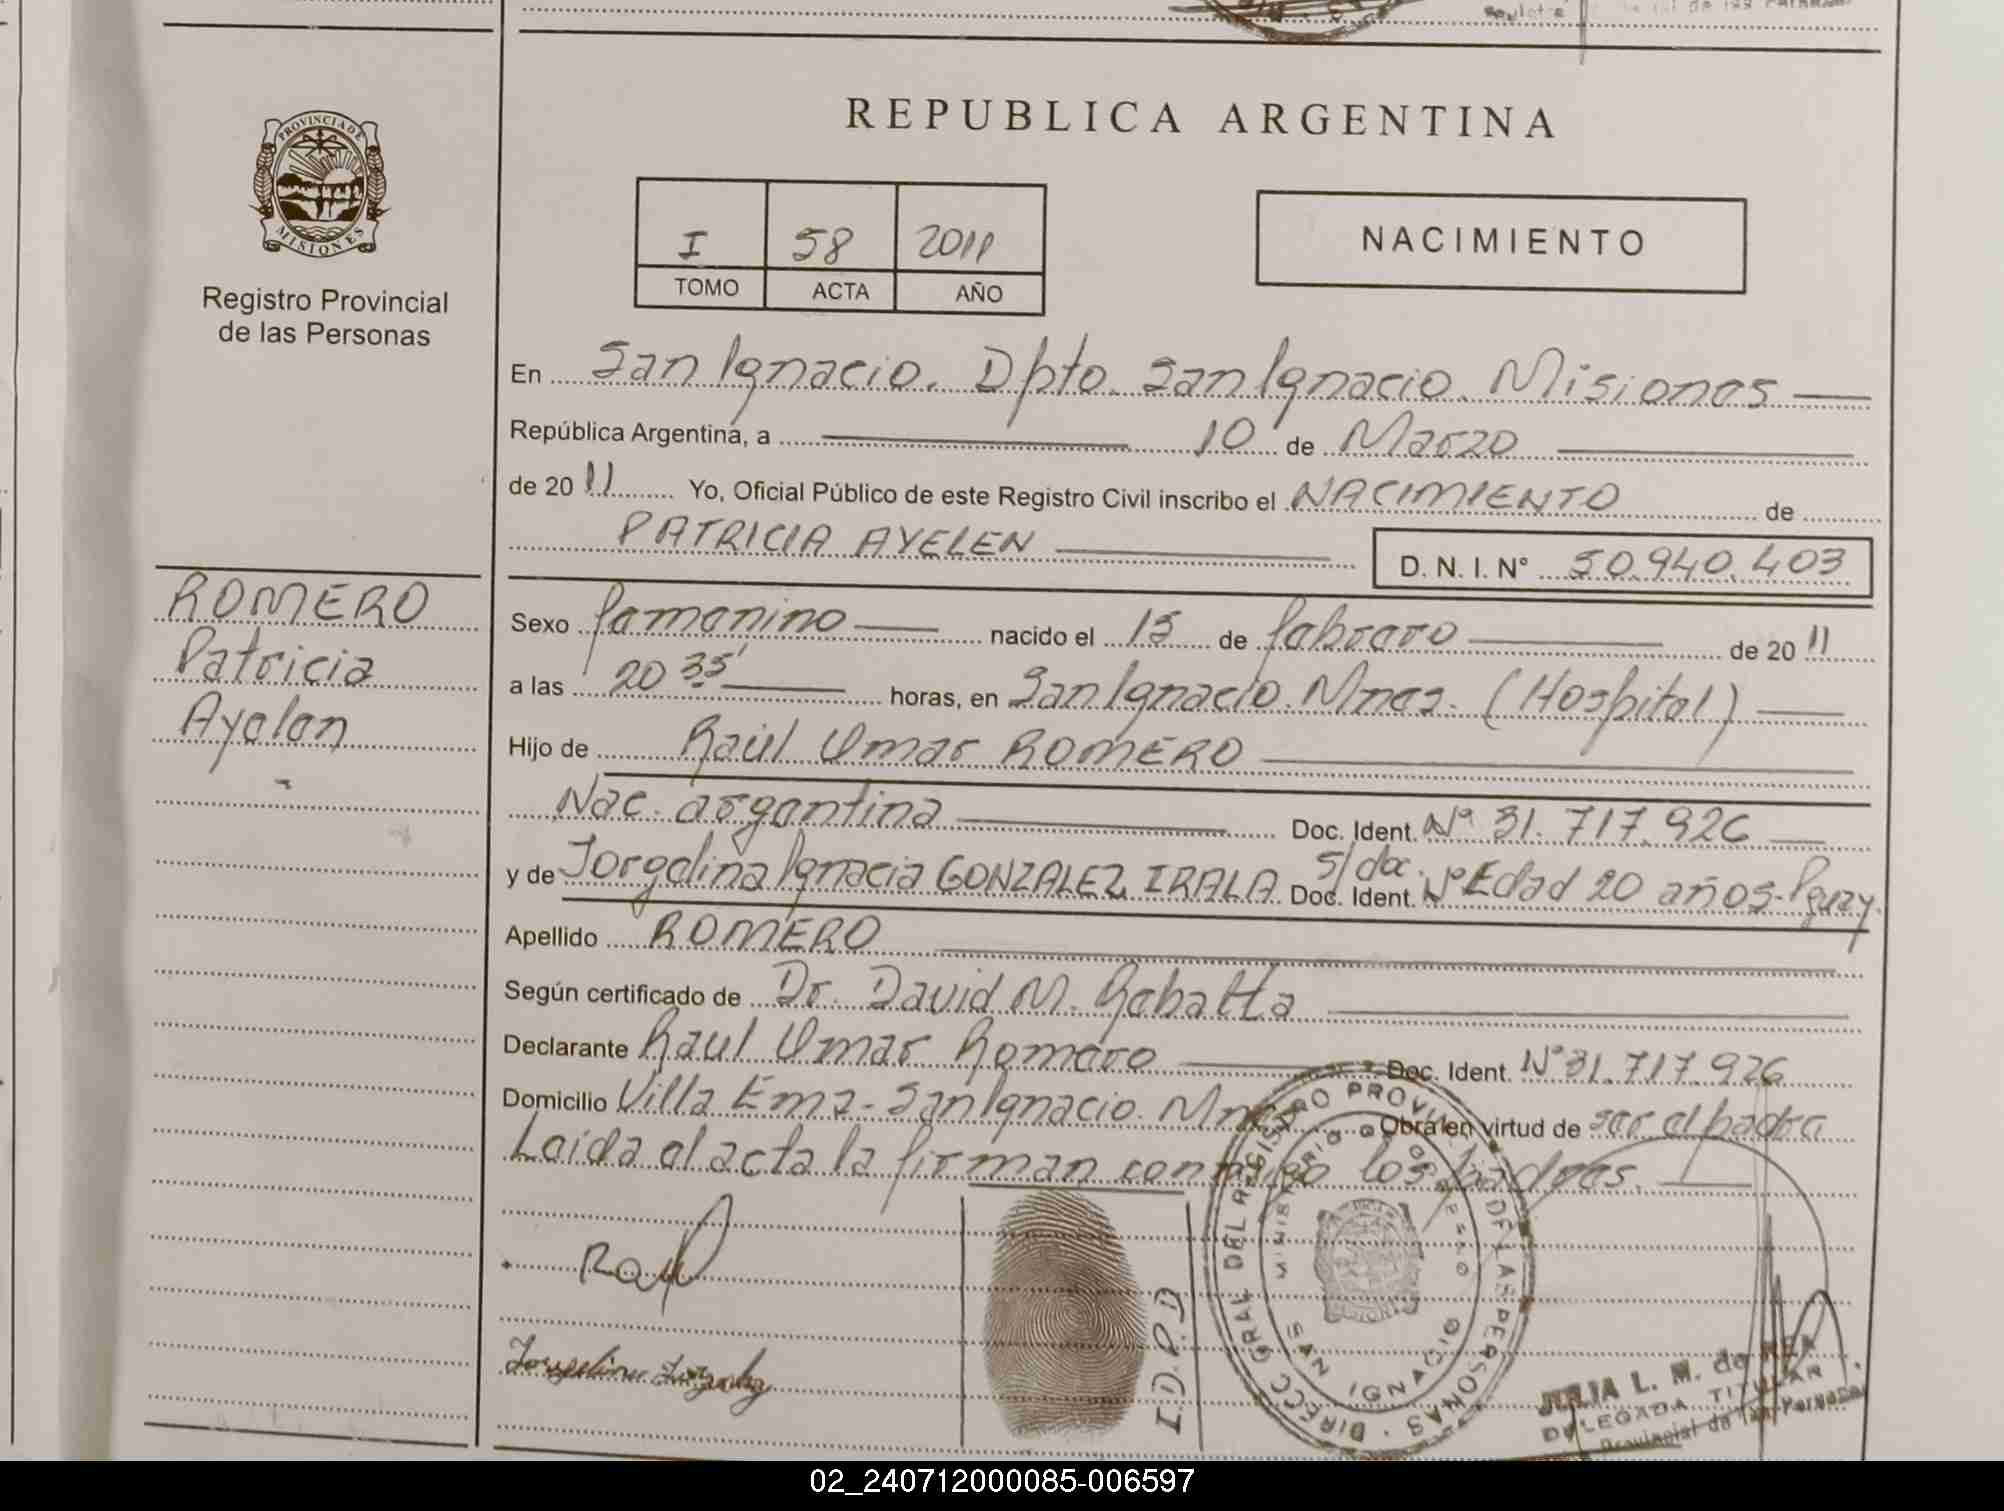 REPUBLICA ARGENTINA
PROVINCIA DE
MISIONES
Registro Provincial
de las Personas
I 58 2011
TOMO ACTA AÑO
NACIMIENTO
En San Ignacio. Dpto. San Ignacio. Misiones
República Argentina, a 10 de Marzo
de 2011 Yo, Oficial Público de este Registro Civil inscribo el NACIMIENTO de
PATRICIA AYELEN D. N. I. Nº 50.940.403
ROMERO
Patricia
Ayelen
Sexo femenino nacido el 15 de febrero de 2011
a las 20 35' horas, en San Ignacio. Mnes. (Hospital)
Hijo de Raúl Omar ROMERO
Nac. argentina Doc. Ident. Nº 31.717.926
y de Jorgelina Ignacia GONZALEZ IRALA s/doc. Doc. Ident. Nº Edad 20 años - Pguay.
Apellido ROMERO
Según certificado de Dr. David M. Rebatta
Declarante Raul Omar Romero Doc. Ident. Nº 31.717.926
Domicilio Villa Ema - San Ignacio. Mnes. Obra en virtud de ser el padre
Leida el acta la firman conmigo los padres.
Raul
I.D.P.D
DIRECC GRAL DEL REGISTRO PROVINCIAL DE LAS PERSONAS
MINISTERIO DE GOBIERNO
SAN IGNACIO
MISIONES
JULIA L. M. de REA
DELEGADA TITULAR
Provincial de las Personas
02_240712000085-006597